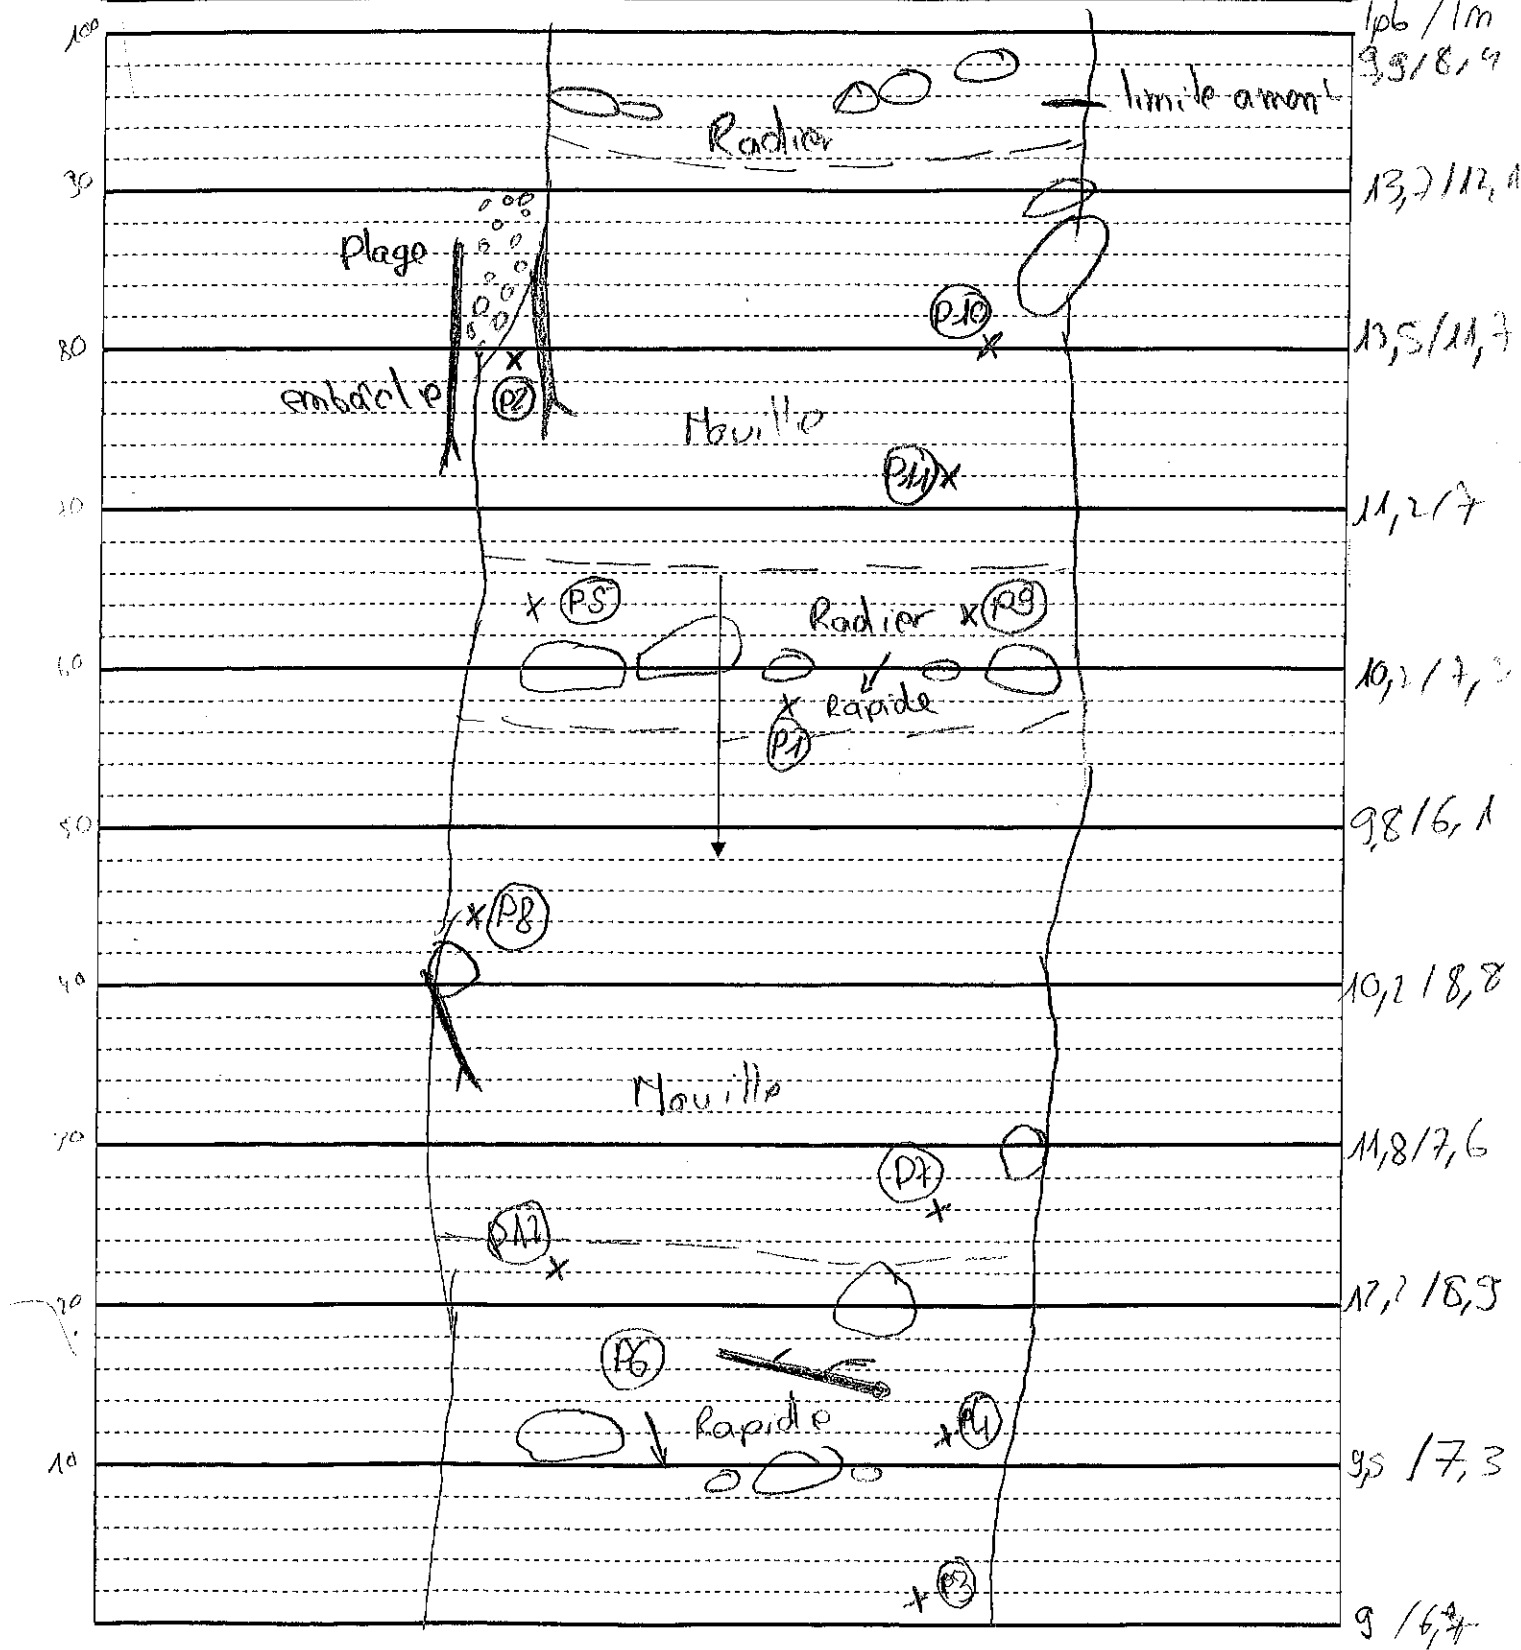 100
lpb / lm
9,9 / 8,4
limite amont
Radier
90
13,7 / 12,1
Plage
P10
80
13,5 / 11,7
embâcle
P2
Mouille
P11
70
11,2 / 7
P5
Radier
P9
60
Rapide
P1
50
9,8 / 6,1
P8
40
10,2 / 8,8
Mouille
30
11,8 / 7,6
P7
P12
20
P6
P4
Rapide
10
9,5 / 7,3
P3